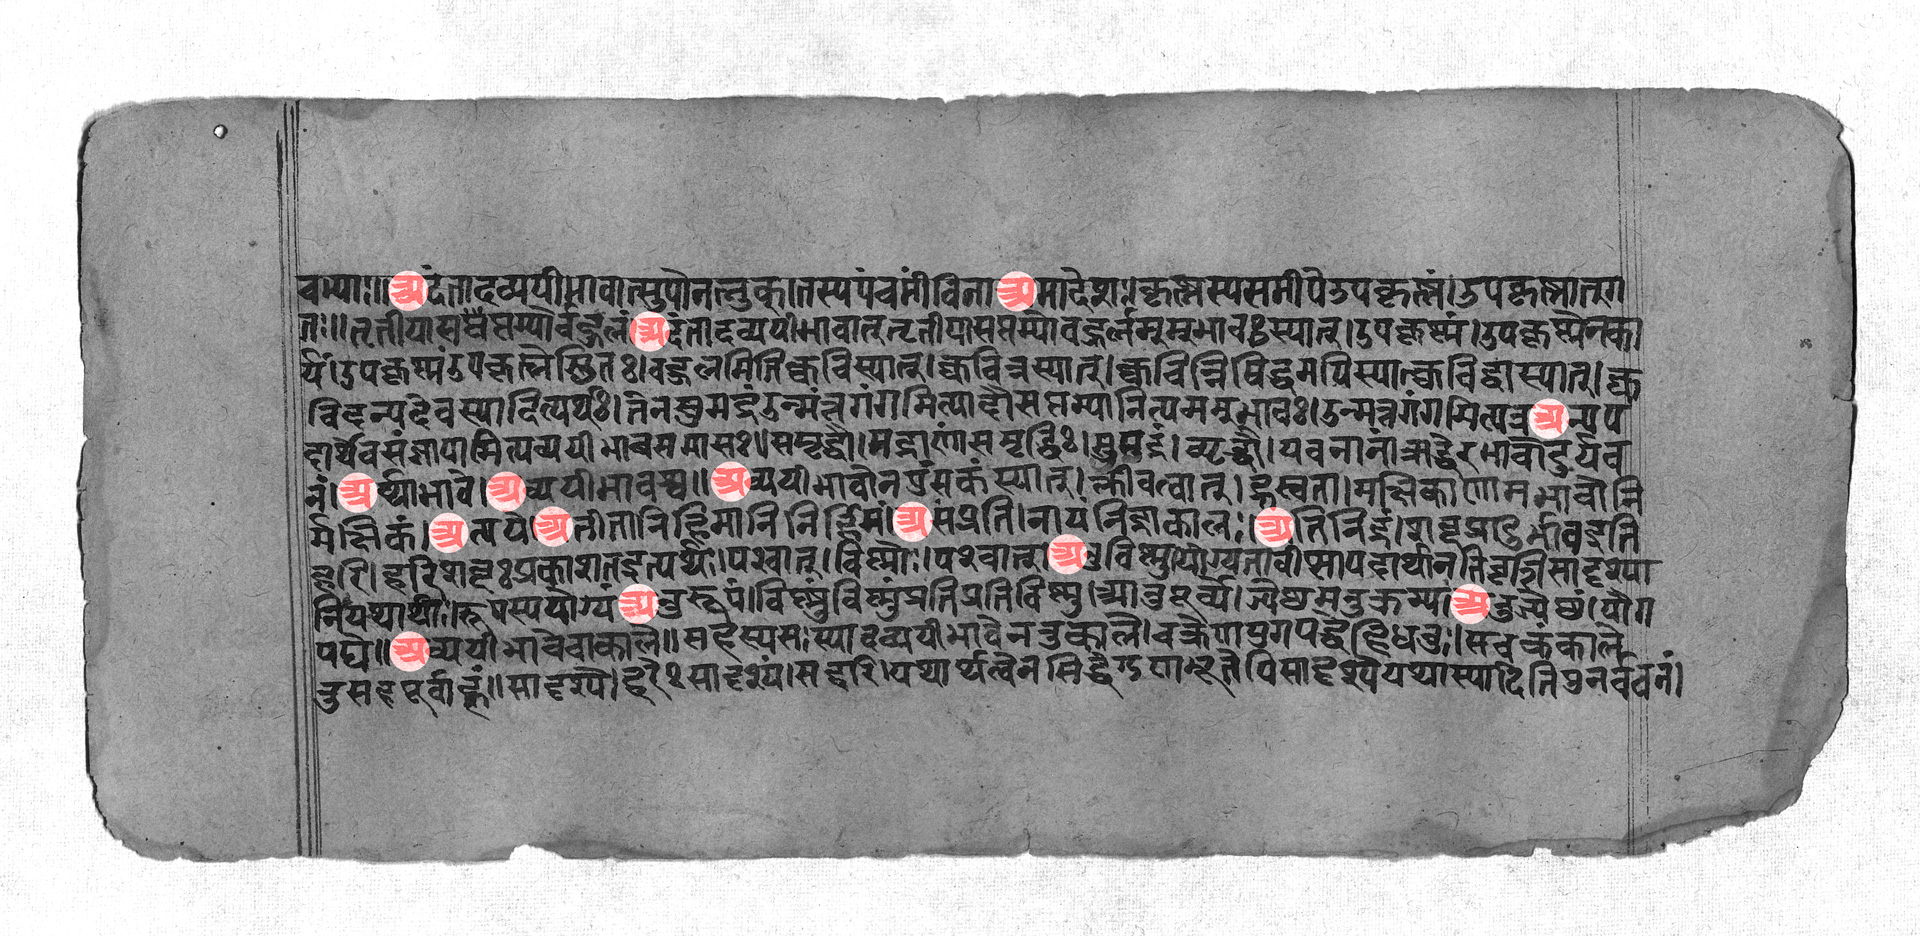 वाच्याः॥ अदंतादव्ययीभावात्सुपोनलुक्।तस्यपंचमींविनाअमादेशः।कृत्स्नस्यसमीपेउपकृत्स्नं।उपकृत्स्नात्।ग
तः॥तृतीयासप्तम्योर्बहुलं।अदंतादव्ययीभावात्तृतीयासप्तम्योर्बहुलममुभावःस्यात्।उपकृष्णं।उपकृष्णेनका
र्यं।उपकृष्णंउपकृष्णेस्थितः।बहुलमितिक्वचित्स्यात्।क्वचिन्नस्यात्।क्वचिन्निषिद्धमपिस्यात्क्वचिद्वास्यात्।क्व
चिदन्यदेवस्यादित्यर्थः।तेनसुमद्रंउन्मत्तगंगमित्यादौसप्तम्यानित्यममुभावः।उन्मत्तगंगमित्यत्रअन्यप
दार्थेचसंज्ञायामित्यव्ययीभावसमासः॥समृद्धौ।मद्राणांसमृद्धिः।सुमद्रं।व्यृद्धौ।यवनानांऋद्धेरभावोदुर्यव
नं।अर्थाभावे।अव्ययीभावश्च॥अव्ययीभावोनपुंसकंस्यात्।क्लीबत्वात्।ह्रस्वता।मक्षिकाणामभावोनि
र्मक्षिकं।अत्यये।अतीतानिहिमानिनिर्हिमं।असंप्रति।नायंनिद्राकालः।अतिनिद्रं।शब्दप्रादुर्भावइति
हरि।हरिशब्दःप्रकाशतइत्यर्थः।पश्चात्।विष्णोः।पश्चात्।अनुविष्णु।योग्यतावीप्सापदार्थानतिवृत्तिसादृश्या
नियथार्थाः।रूपस्ययोग्यंअनुरूपं।विष्णुंविष्णुंप्रतिप्रतिविष्णु।आनुपूर्व्ये।ज्येष्ठमनुक्रम्यअनुज्येष्ठं।यौग
पद्ये॥अव्ययीभावेचाकाले॥सहस्यसःस्यादव्ययीभावेनतुकाले।चक्रेणयुगपद्धेहिधनुः।सचक्रंकाले
तुसहपूर्वाह्णं॥सादृश्ये।हरेःसादृश्यं।सहरि।यथार्थत्वेनसिद्धेगुणभूतेपिसादृश्येयथास्यादितिपुनर्वचनं।